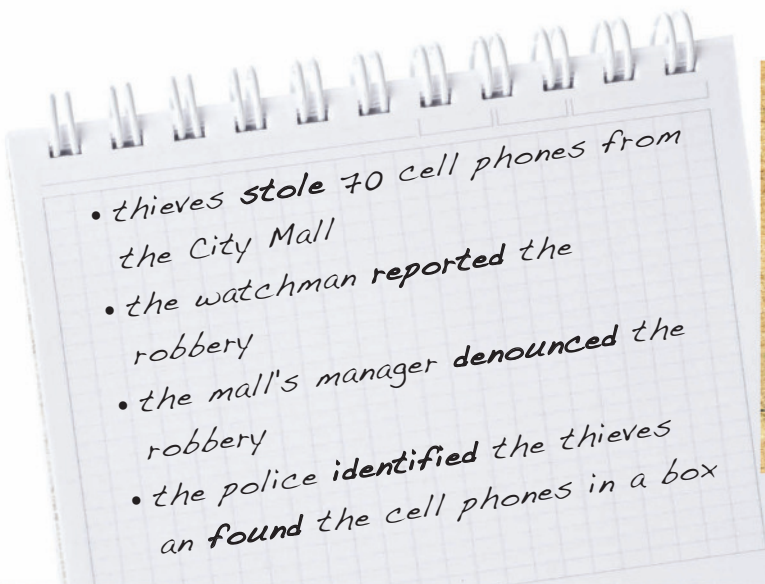 • thieves stole 70 cell phones from
the City Mall
• the watchman reported the
robbery
• the mall's manager denounced the
robbery
• the police identified the thieves
an found the cell phones in a box